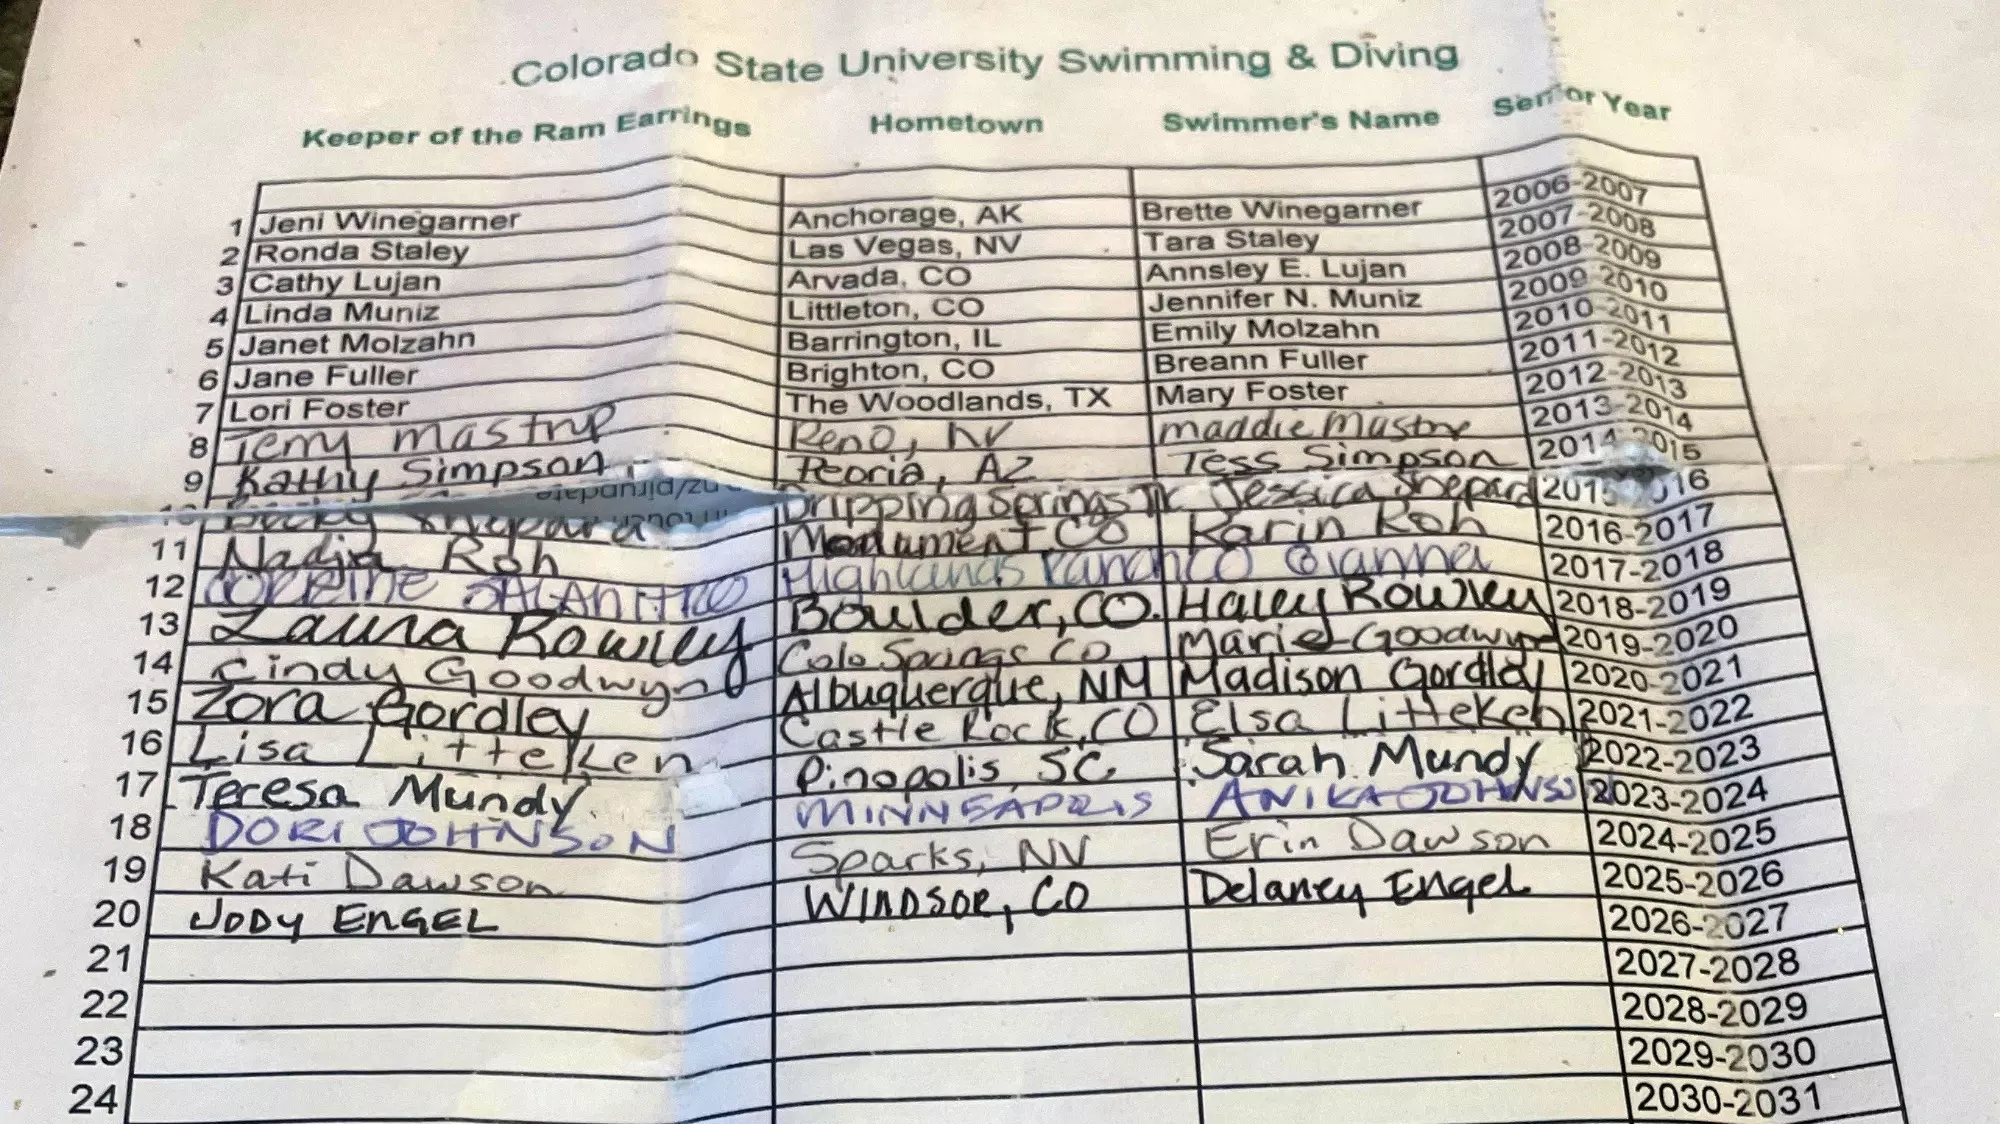 Colorado State University Swimming & Diving
Keeper of the Ram Earrings Hometown Swimmer's Name Senior Year
1 Jeni Winegarner Anchorage, AK Brette Winegarner 2006-2007
2 Ronda Staley Las Vegas, NV Tara Staley 2007-2008
3 Cathy Lujan Arvada, CO Annsley E. Lujan 2008-2009
4 Linda Muniz Littleton, CO Jennifer N. Muniz 2009-2010
5 Janet Molzahn Barrington, IL Emily Molzahn 2010-2011
6 Jane Fuller Brighton, CO Breann Fuller 2011-2012
7 Lori Foster The Woodlands, TX Mary Foster 2012-2013
8 Terry Mastrup Reno, NV Maddie 2013-2014
9 Kathy Simpson Peoria, AZ Tess Simpson 2014-2015
10 Becky Shepard Dripping Springs TX Jessica Shepard 2015-2016
11 Nadja Roh Monument CO Karin Roh 2016-2017
12 Highlands Ranch CO Gianna 2017-2018
13 Laura Rowley Boulder, CO. Haley Rowley 2018-2019
14 Cindy Goodwyn Colo Springs CO Marie Goodwyn 2019-2020
15 Zora Gordley Albuquerque, NM Madison Gordley 2020-2021
16 Lisa Litteken Castle Rock, CO Elsa Litteken 2021-2022
17 Teresa Mundy Pinopolis, SC Sarah Mundy 2022-2023
18 DORI JOHNSON MINNEAPOLIS ANIKA JOHNSON 2023-2024
19 Kati Dawson Sparks, NV Erin Dawson 2024-2025
20 JODY ENGEL WINDSOR, CO Delaney Engel 2025-2026
21 2026-2027
22 2027-2028
23 2028-2029
24 2029-2030
2030-2031